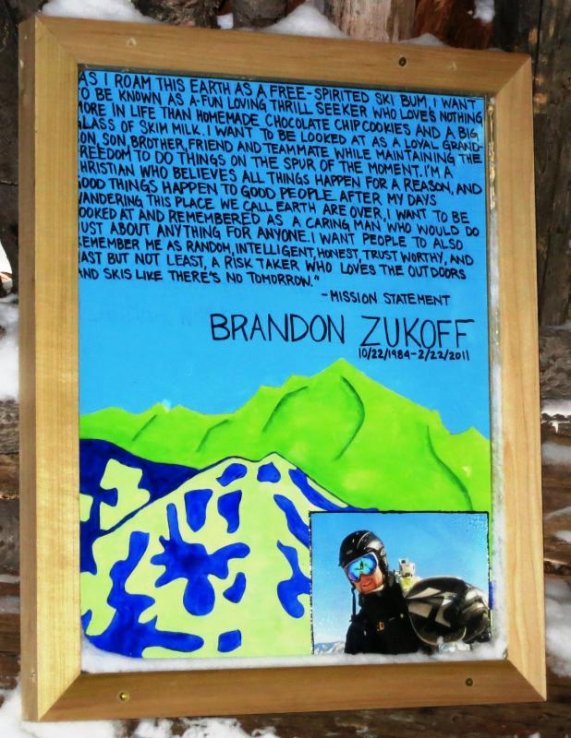 AS I ROAM THIS EARTH AS A FREE-SPIRITED SKI BUM, I WANT
TO BE KNOWN AS A FUN LOVING THRILL SEEKER WHO LOVES NOTHING
MORE IN LIFE THAN HOMEMADE CHOCOLATE CHIP COOKIES AND A BIG
GLASS OF SKIM MILK. I WANT TO BE LOOKED AT AS A LOYAL GRAND-
SON, SON, BROTHER, FRIEND AND TEAMMATE WHILE MAINTAINING THE
FREEDOM TO DO THINGS ON THE SPUR OF THE MOMENT. I'M A
CHRISTIAN WHO BELIEVES ALL THINGS HAPPEN FOR A REASON, AND
GOOD THINGS HAPPEN TO GOOD PEOPLE. AFTER MY DAYS
WANDERING THIS PLACE WE CALL EARTH ARE OVER, I WANT TO BE
LOOKED AT AND REMEMBERED AS A CARING MAN WHO WOULD DO
JUST ABOUT ANYTHING FOR ANYONE. I WANT PEOPLE TO ALSO
REMEMBER ME AS RANDOM, INTELLIGENT, HONEST, TRUST WORTHY, AND
LAST BUT NOT LEAST, A RISK TAKER WHO LOVES THE OUTDOORS
AND SKIS LIKE THERE'S NO TOMORROW."
-MISSION STATEMENT
BRANDON ZUKOFF
10/22/1984-2/22/2011